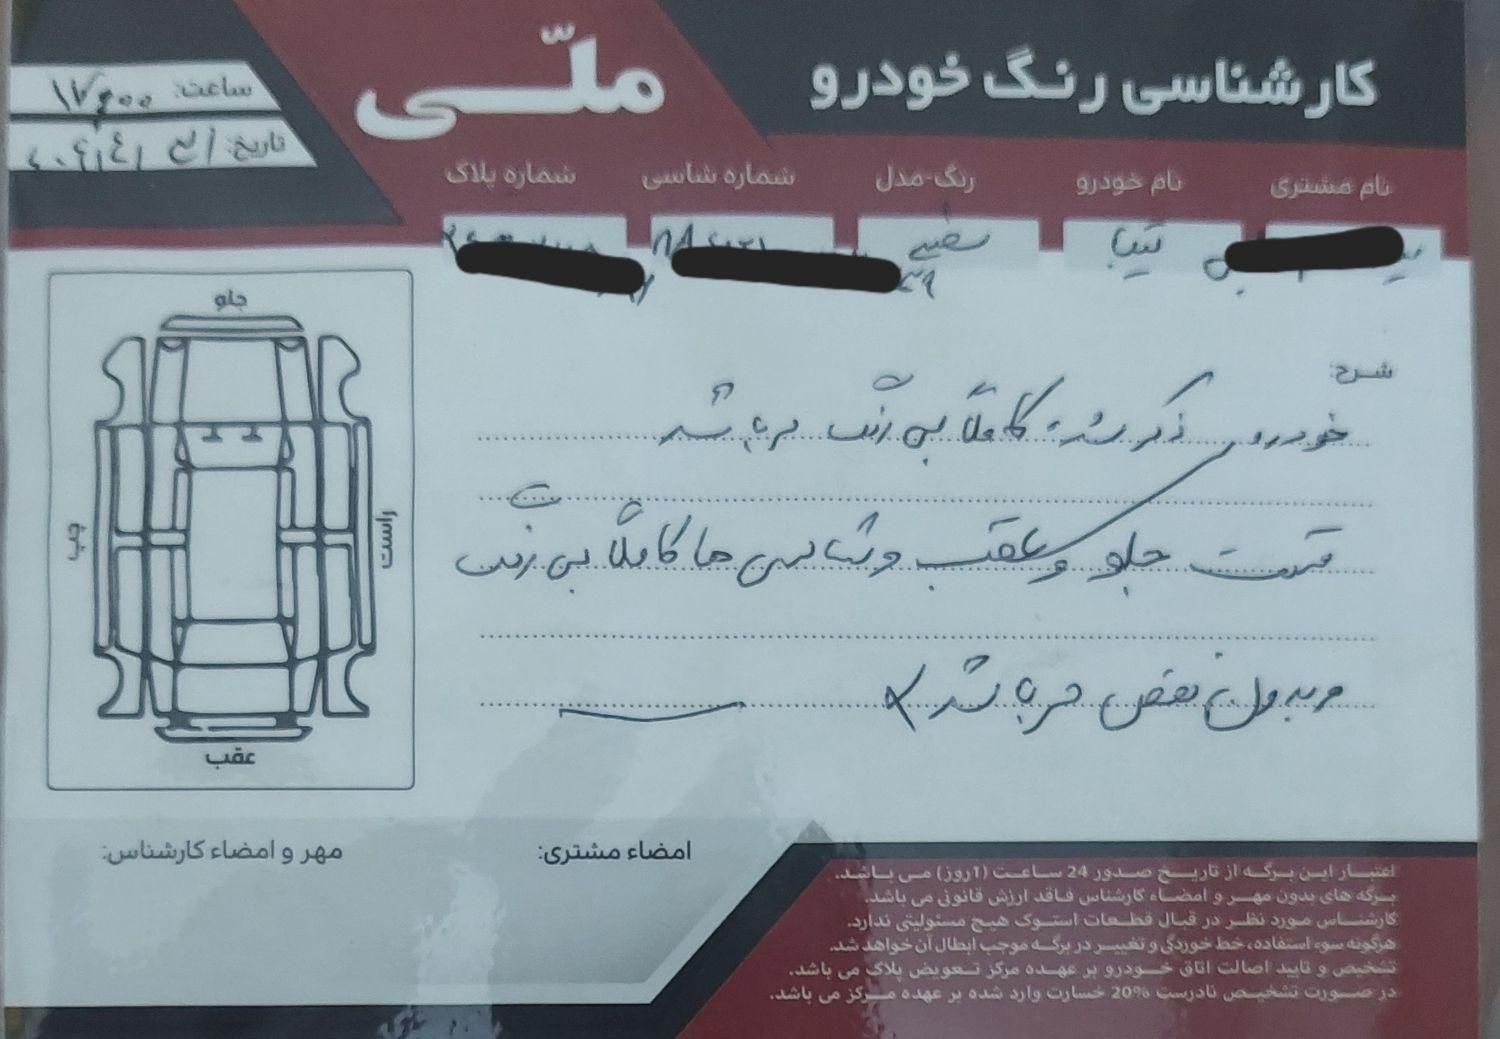 کارشناسی رنگ خودرو
ملّی
ساعت: ۱۷:۰۰
تاریخ:
نام مشتری
نام خودرو
رنگ-مدل
شماره شاسی
شماره پلاک
تیبا
سفید
شرح:
خودرو ذکر شده کاملاً بی رنگ می باشد
قسمت جلو و عقب و شاسی ها کاملاً بی رنگ
و بدون نقص می باشد
جلو
چپ
راست
عقب
امضاء مشتری:
مهر و امضاء کارشناس:
اعتبار این برگه از تاریخ صدور 24 ساعت (1روز) می باشد.
برگه های بدون مهر و امضاء کارشناس فاقد ارزش قانونی می باشد.
کارشناس مورد نظر در قبال قطعات استوک هیچ مسئولیتی ندارد.
هرگونه سوء استفاده، خط خوردگی و تغییر در برگه موجب ابطال آن خواهد شد.
تشخیص و تایید اصالت اتاق خودرو بر عهده مرکز تعویض پلاک می باشد.
در صورت تشخیص نادرست 20% خسارت وارد شده بر عهده مرکز می باشد.